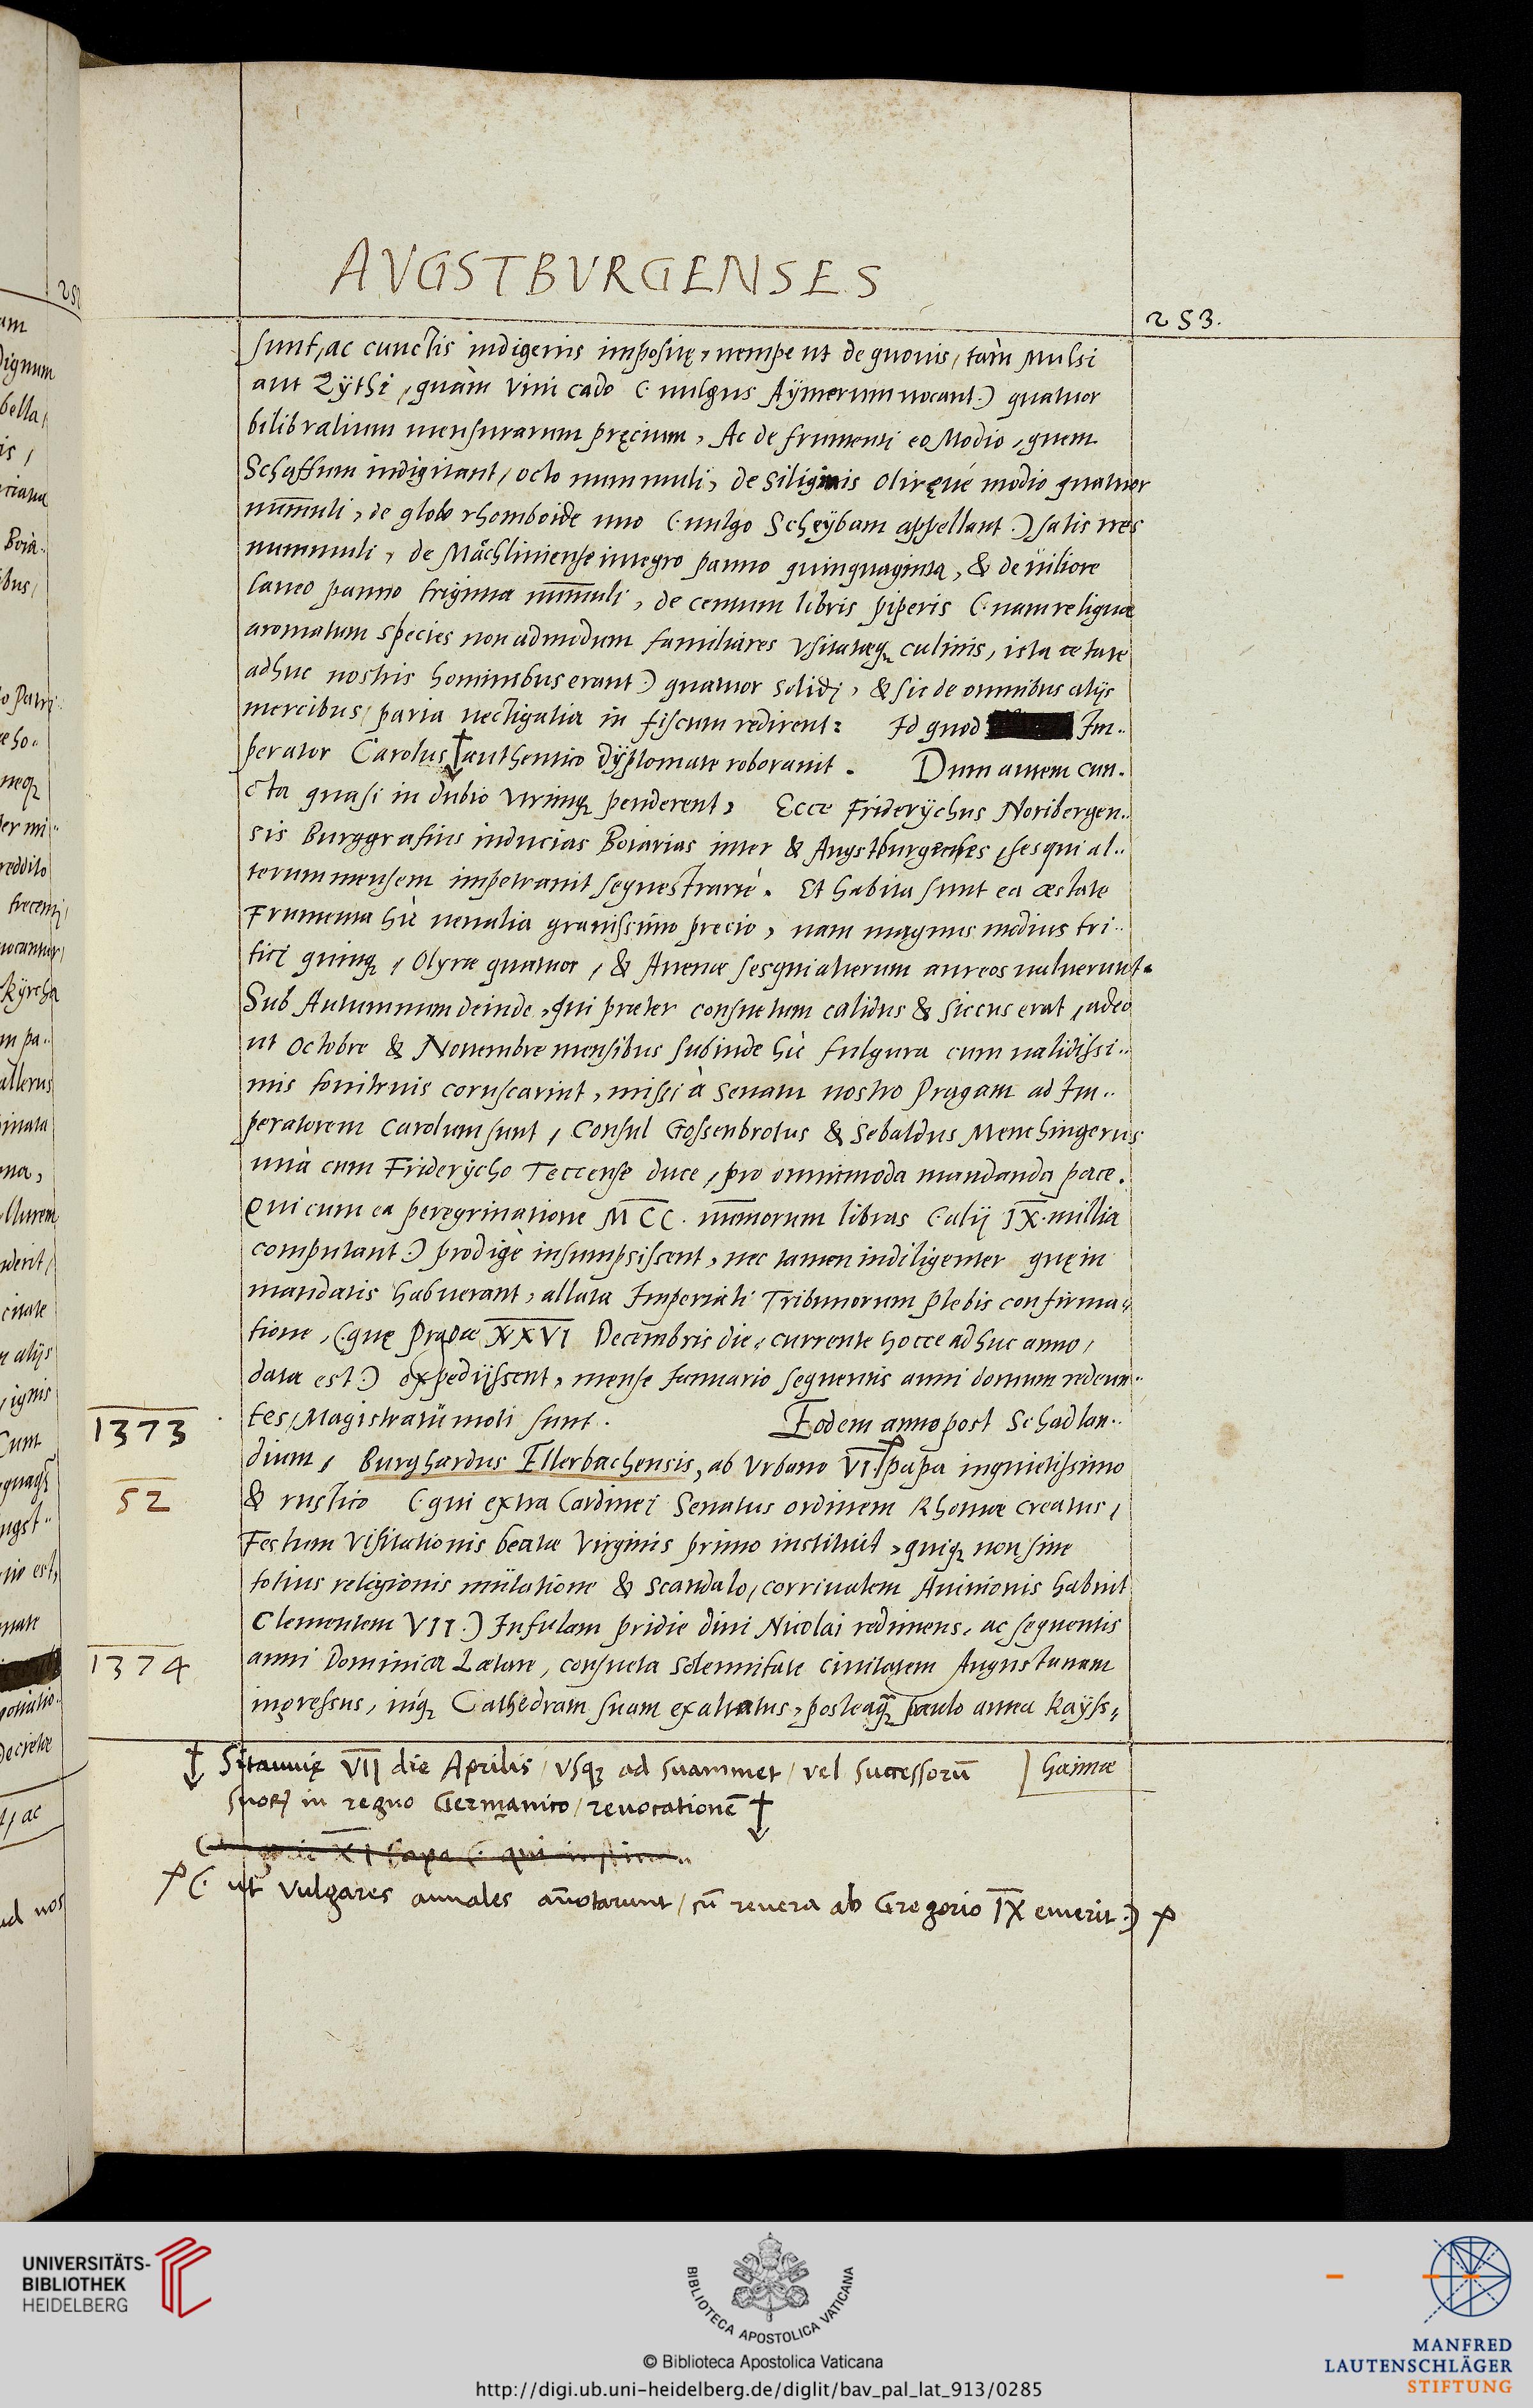 AVGSTBVRGENSES
253.
sunt, ac cunctis indigenis impositę, nempe ut de quouis, tàm Mulsi
aut Zÿthi, quàm vini cado (: uulgus Aÿmerum uocant:) quatuor
bilibralium mensurarum pręcium, Ac de frumenti eo Modio, quem
Schaffum indigitant, octo nummuli, de Siliginis Oliręué modio quatuor
num̅uli, de globo rhomboide uno (: uulgo Scheÿbam appellant:) salis tres
nummuli, de Mächliniense integro panno quinquaginta, & de uiliore
laneo panno triginta num̅uli, de centum libris piperis (: nam reliquæ
aromatum species non admodum familiares vsitatæq; culinis, ista ætate
adhuc nostris hominibus erant:) quatuor solidi, & sic de omnibus alijs
mercibus, paria uectigalia in fiscum redirent: Id quod Im..
perator Carolus † authentico Dÿplomate roborauit. Dum autem cun.
cta quasi in dubio vtrinq; penderent, Ecce Friderÿchus Noribergen..
sis Burggrafius inducias Boiarias inter & Augstburgenses, sesquial..
terum mensem impetrauit sequestrariè. Et habita sunt ea æstate
Frumenta hic uenalia grauissimo precio, nam magnus modius tri..
tici quinq;, Olyræ quatuor, & Auenæ sesquialterum aureos ualuerunt.
Sub Autumnum deinde, qui præter consuetum calidus & siccus erat, adeo
ut Octobre & Nouembre mensibus subinde hic fulgura cum ualidissi..
mis tonitruis coruscarint, missi à Senatu nostro Pragam ad Im..
peratorem Carolum sunt, Consul Gossenbrotus & Sebaldus Menchingerus
unà cum Friderÿcho Teccense duce, pro omnimoda mandanda pace.
Qui cum ea peregrinatione MCC. num̅orum libras (: alij IX. millia
computant:) prodigè insumpsissent, nec tamen indiligenter quę in
mandatis habuerant, allata Imperiali Tribunorum plebis confirma..
tione, (: quę Pragæ XXVI Decembris die, currente hocce adhuc anno,
data est:) expedijssent, mense Ianuario sequentis anni domum redeun..
1373 tes, Magistratu moti sunt. Eodem anno post Schadlan..
dium, Burghardus Ellerbachensis, ab Vrbano VI. papa inquietissimo
52 & rustico (: qui extra Cardinei Senatus ordinem Rhomæ creatus,
Festum Visitationis beatæ Virginis primo instituit, quiq; non sine
totius religionis mutatione & scandalo, corriualem Auinionis habuit
Clementem VII:) Infulam pridie diui Nicolai redimens, ac sequentis
1374 anni Dominica Lætare, consueta solennitate ciuitatem Augustanam
ingressus, inq; Cathedram suam exaltatus, posteaq; paulo antea Kayss,
† Sitauię VII die Aprilis, vsq; ad suammet, vel successoru̅ haimæ
suor; in regno Germanico, reuocatione̅ †
(: ut vulgares annales an̅otarunt, cu̅ reuera ab Gregorio IX emerit:)
UNIVERSITÄTS-
BIBLIOTHEK
HEIDELBERG
BIBLIOTECA APOSTOLICA VATICANA
© Biblioteca Apostolica Vaticana
http://digi.ub.uni-heidelberg.de/diglit/bav_pal_lat_913/0285
MANFRED
LAUTENSCHLÄGER
STIFTUNG